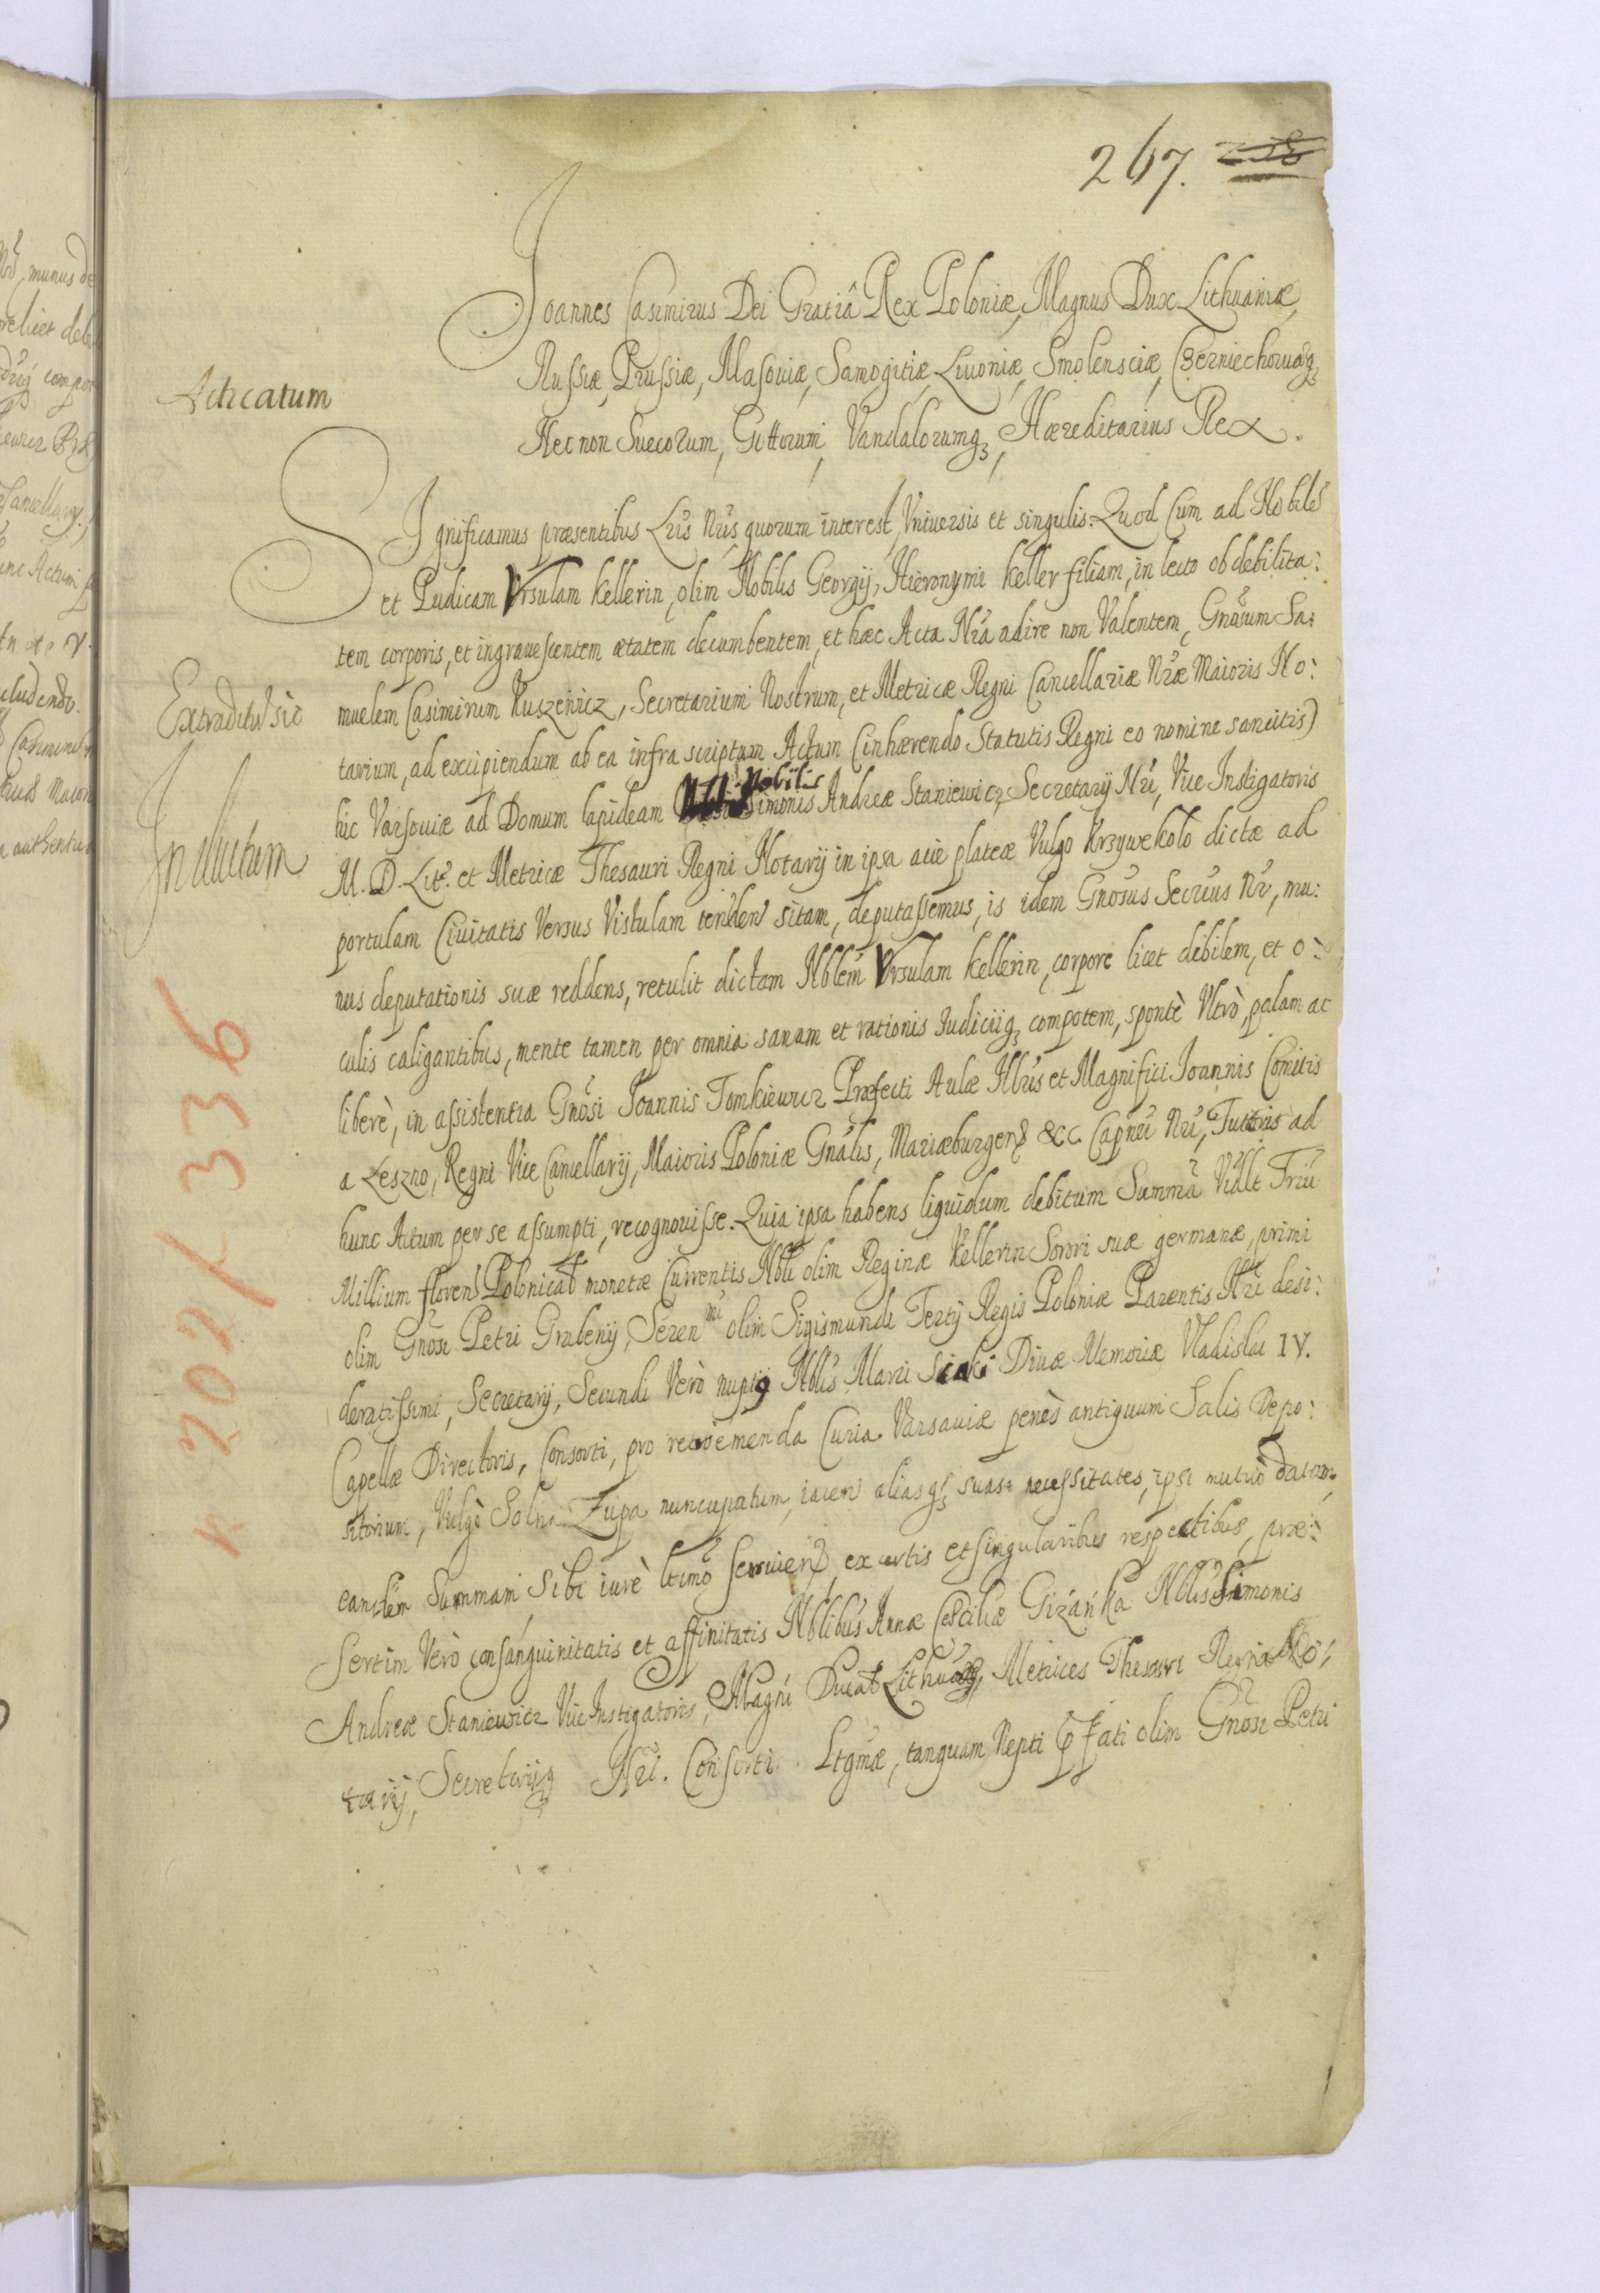 267.
Joannes Casimirus Dei Gratiâ Rex Poloniæ, Magnus Dux Lithuaniæ,
Russiæ, Prussiæ, Masoviæ, Samogitiæ, Livoniæ, Smolensciæ, Czerniechoviæq3
Necnon Suecorum, Gottorum, Vandalorumq3, Hæreditarius Rex.
Acticatum
Significamus præsentibus Lris Nris quorum interest, Vniversis et singulis. Quod Cum ad Nobile
et Pudicam Vrsulam Kellerin, olim Nobilis Georgij, Hieronymi Keller filiam, in lecto ob debilita:
tem corporis, et ingravescentem ætatem decumbentem, et hæc Acta Nra adire non Valentem, Gnosum Sa:
muelem Casimirum Kuszewicz, Secretarium Nostrum, et Metricæ Regni Cancellariæ Nræ Maioris No:
tarium, ad excipiendum ab ea infra scriptum Actum (inhærendo Statutis Regni eo nomine sancitis)
hic Varsoviæ ad Domum lapideam Nobilis Simonis Andreæ Staniewicz Secretarij Nri, Vice Instigatoris
M. D. Lit. et Metricæ Thesauri Regni Notarij in ipsa acie plateæ Vulgo Krzywekoło dictæ ad
portulam Civitatis Versus Vistulam tenden sitam, deputassemus, is idem Gnosus Secrius Nr, mu:
nus deputationis suæ reddens, retulit dictam Nblem Vrsulam Kellerin, corpore licet debilem, et o:
culis caligantibus, mente tamen per omnia sanam et rationis Iudiciiq3 compotem, spontè Vltrò, palam ac
liberè, in assistentia Gnosi Joannis Tomkiewicz Præfecti Aulæ Illris et Magnifici Joannis Comitis
a Leszno, Regni Vice Cancellarij, Maioris Poloniæ Gnalis, Mariæburgen &cc Capnei Nri, Tutoris ad
hunc Actum per se assumpti, recognovisse. Quia ipsa habens liquidum debitum Summâ Vidlt Triu
Millium floren Polonical monetæ Currentis Nbli olim Reginæ Kellerin Sorori suæ germanæ, primi
olim Gnosi Petri Grzebenij, Seren mi olim Sigismundi Tertij Regis Poloniæ Parentis Nri desi:
deratissimi, Secretarij, Secundi Verò nuptijs Nblis Marci Sciaki Divæ Memoriæ Vladislai IV.
Capellæ Directoris, Consorti, pro reemenda Curia Varsaviæ penès antiquum Salis Repo:
sitorium, Vulgò Solna Zupa nuncupatum, iacen aliasq3 suas necessitates, ipsi mutuò datam,
eandem Summam Sibi iurè ltimo servien ex certis et singularibus respectibus, præ:
sertim Verò consanguinitatis et affinitatis Nblibus Annæ Cæciliæ Giżańka Nblis Simonis
Andreæ Staniewicz Vice Instigatoris, Magni Ducat Lithu, Metrices Thesauri Regni No:
tarij, Secretarijq3 Nri. Consorti Ltgmæ, tanquam Nepti præfati olim Gnosi Petri
Extraditu sic
Inductum
k 202/336